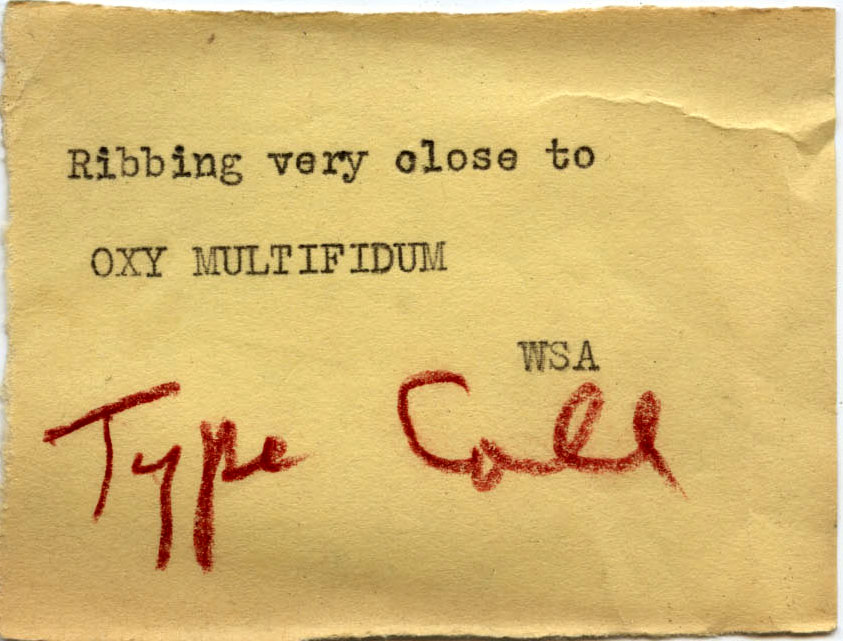 Ribbing very close to
OXY MULTIFIDUM
WSA
Type Coll